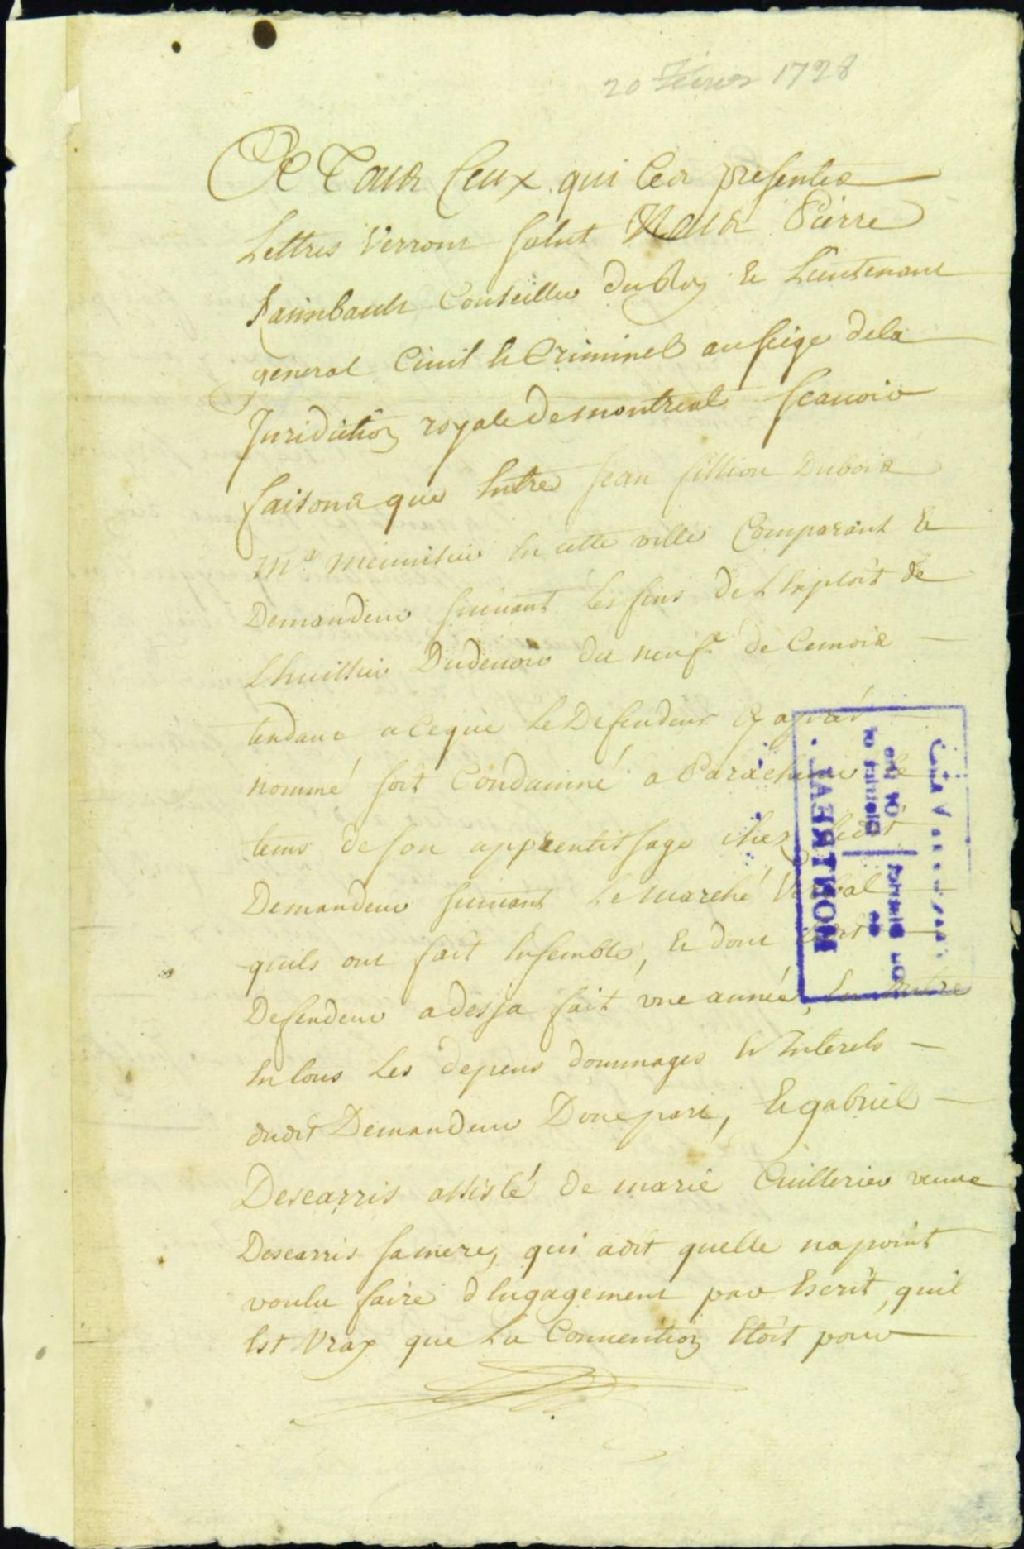 20 Février 1728
A Tous Ceux qui Ces presentes
Lettres Verront Salut Nous Pierre
Raimbault Conseiller du Roy et Lieutenant
general Civil et Criminel au siege dela
Juridiction royale de montreal scavoir
faisons que Entre Jean fillion Dubois
Me menuisier En cette ville Comparant et
Demandeur suivant les fins de L'Exploit de
Lhuissier Dudevoir du neufe de Cemois
tendant a Ceque LeDefendeur cy aprés
nommé soit Condamné a Parachever le
tems de son apprentissage chez ledit
Demandeur suivant Le marché Verbal
quils ont fait Ensemble, et dont
Defendeur adesja fait vne année, En outre
En tous Les depens dommages et Interets
dudit Demandeur Dune part, Et gabriel
Descarris assisté de marie Cuillerier veuve
Descarris samere, qui adit quelle napoint
voulu faire dEngagement par Escrit, quil
Est Vray que La Convention Etoit pour
MONTREAL.